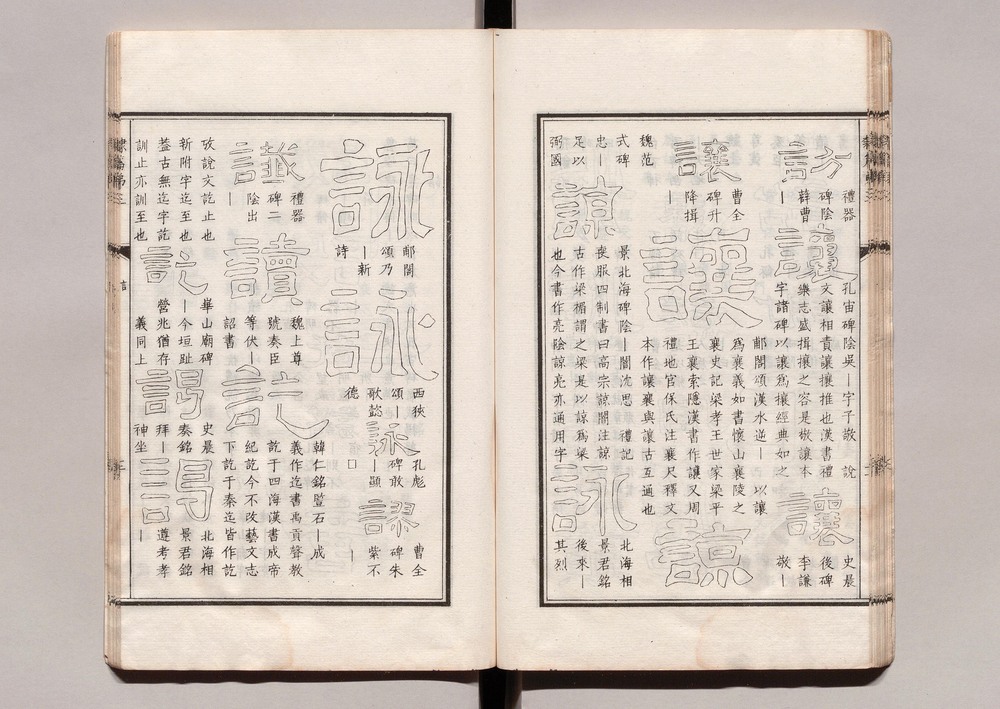 訪
禮器
碑陰
薛曹
—
讓
孔宙碑陰吳—字子敬 說
文讓相責讓攘推也漢書禮
樂志盛揖攘之容是敬讓本
字諸碑以讓爲攘經典如之
讓
史晨
後碑
李謙
敬—
讓
曹全
碑升
降揖
—
讓
郙閣頌漢水逆— 以讓
爲襄義如書懷山襄陵之
襄史記梁孝王世家梁平
王襄索隱漢書作讓又周
禮地官保氏注襄尺釋文
本作讓襄與讓古互通也
諒
魏范
式碑
忠—
足以
弼國
諒
景北海碑陰—闇沈思 禮記
喪服四制書曰高宗諒闇注諒
古作梁楣謂之梁是以諒爲梁
也今書作亮陰諒亮亦通用字
詠
北海相
景君銘
後來—
其烈
詠
郙閣
頌乃
—新
詩
詠
西狹
頌—
歌懿
德
詠
孔彪
碑敢
—顯
□
謬
曹全
碑朱
紫不
—
讖
禮器
碑二
陰出
—
讀
魏上尊
號奏臣
等伏—
詔書
訖
韓仁銘監石—成
義作迄書禹貢聲教
訖于四海漢書成帝
紀訖今不改藝文志
下訖于秦迄皆作訖
攷說文訖止也
新附字迄至也
葢古無迄字訖
訓止亦訓至也
訖
華山廟碑
—今垣趾
營兆猶存
義同上
謁
史晨
奏銘
拜—
神坐
謁
北海相
景君銘
遵考孝
—
言